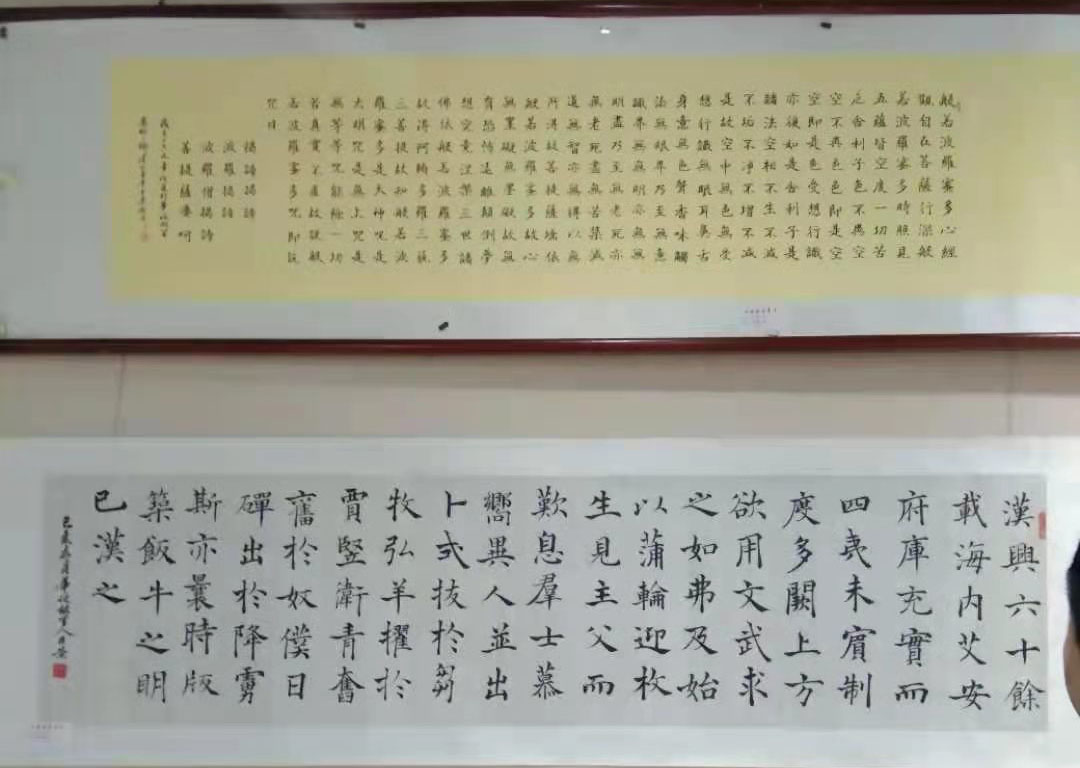 般若波羅蜜多心經
觀自在菩薩行深般
若波羅蜜多時照見
五蘊皆空度一切苦
厄舍利子色不異空
空不異色色即是空
空即是色受想行識
亦復如是舍利子是
諸法空相不生不滅
不垢不净不增不減
是故空中無色無受
想行識無眼耳鼻舌
身意無色聲香味觸
法無眼界乃至無意
識界無無明亦無無
明盡乃至無老死亦
無老死盡無苦集滅
道無智亦無得以無
所得故菩提薩埵依
般若波羅蜜多故心
無罣礙無罣礙故無
有恐怖遠離顛倒夢
想究竟涅槃三世諸
佛依般若波羅蜜多
故得阿耨多羅三藐
三菩提故知般若波
羅蜜多是大神咒是
大明咒是無上咒是
無等等咒能除一切
苦真實不虛故說般
若波羅蜜多咒即說
咒曰
揭諦揭諦
波羅揭諦
波羅僧揭諦
菩提薩婆呵
漢興六十餘
載海内艾安
府庫充實而
四夷未賓制
度多闕上方
欲用文武求
之如弗及始
以蒲輪迎枚
生見主父而
歎息羣士慕
嚮異人並出
卜式拔於芻
牧弘羊擢於
賈竪衛青奮
舊於奴僕日
磾出於降虜
斯亦曩時版
築飯牛之明
已漢之